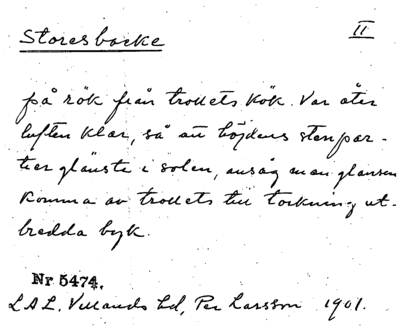 Storesbacke
II
på rök från trollets kök. Var åter
luften klar, så att höjdens stenpar-
tier glänste i solen, ansåg man glansen
komma av trollets till torkning ut-
bredda byk.
Nr 5474.
L.A.L. Villands hd, Per Larsson 1901.